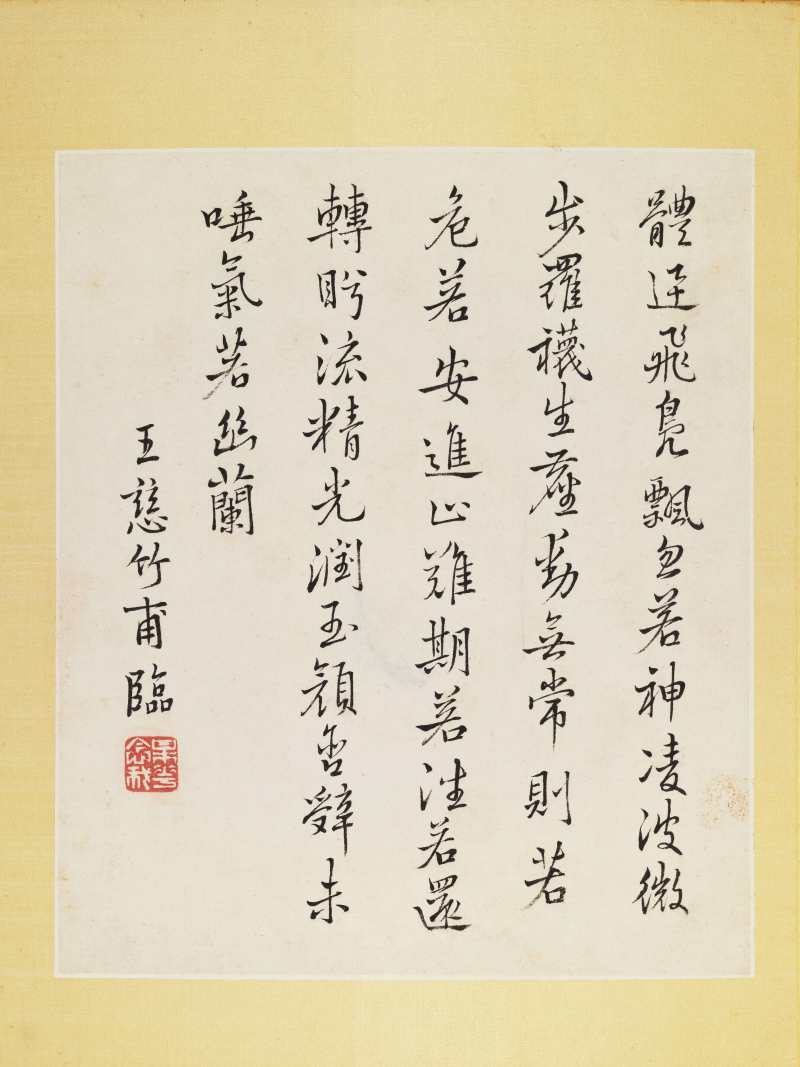 體迅飛鳧飄忽若神淩波微
步羅襪生塵動無常則若
危若安進止難期若往若還
轉盼流精光潤玉顏含辭未
吐氣若幽蘭
王慈竹甫臨